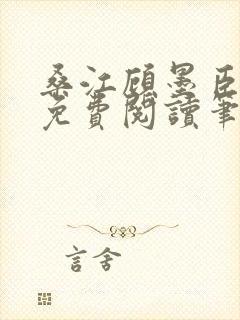 桑江顾墨臣
免費閱讀筆
言舍